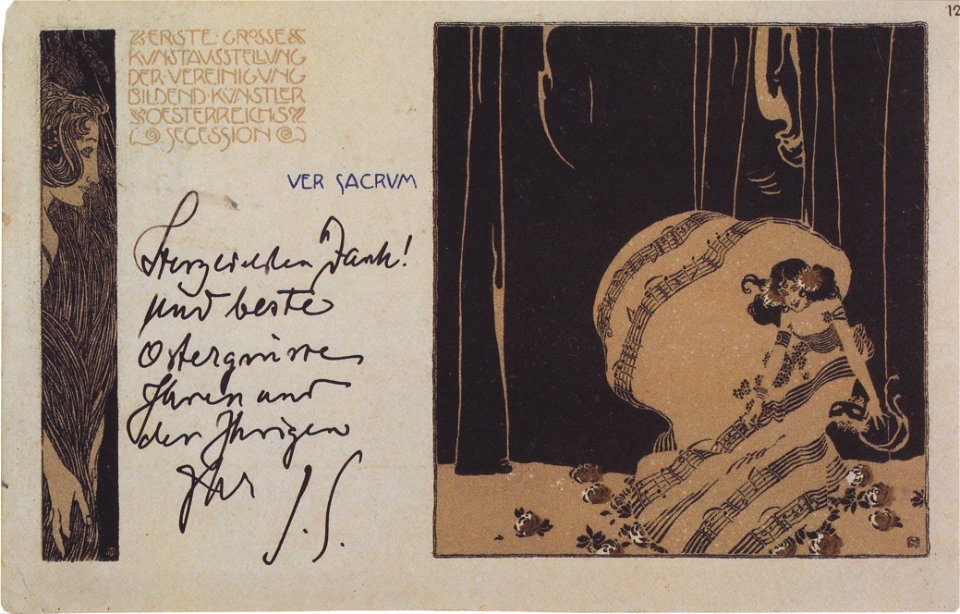 ERSTE · GROSSE
KUNSTAUSSTELLUNG
DER · VEREINIGUNG
BILDEND · KUNSTLER
OESTERREICHS
SECESSION
VER SACRVM
Herzlichen Dank!
und beste
Ostergrüsse
Ihnen und
den Ihrigen
Ihr J. S.
12